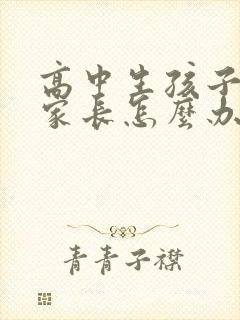 高中生孩子
家长怎麼办
青青子襟